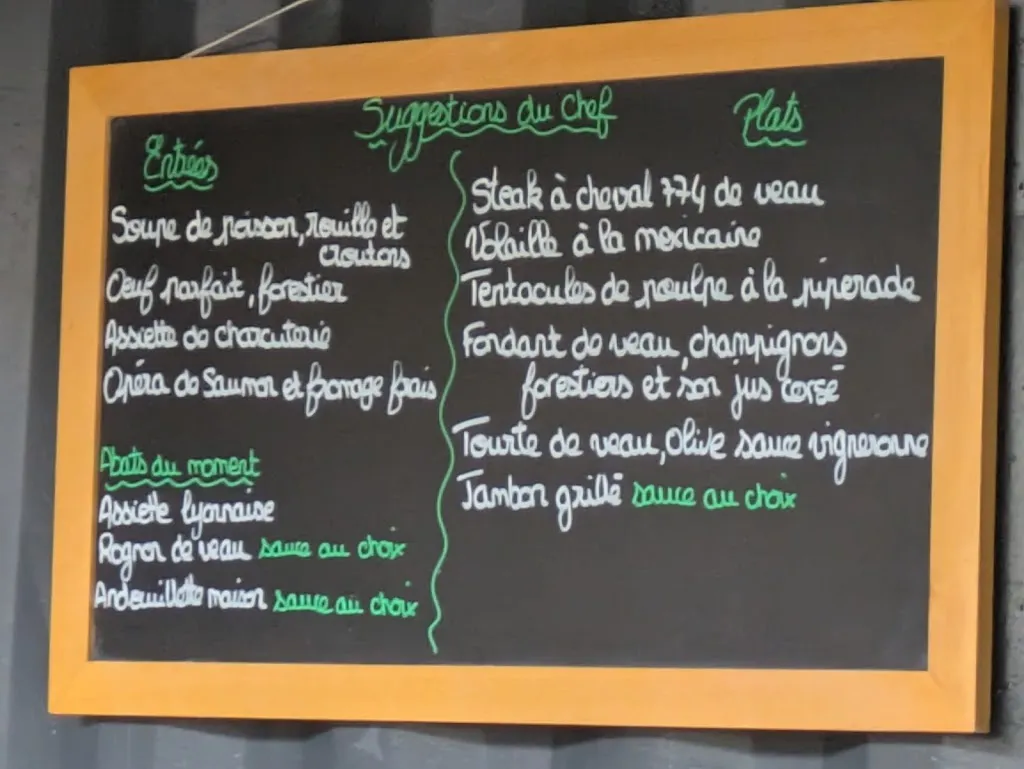 Suggestions du Chef
Entrées
Soupe de poisson, rouille et
croutons
Oeuf parfait, forestier
Assiette de charcuterie
Opéra de Saumon et fromage frais
Abats du moment
Assiette lyonnaise
Rognon de veau sauce au choix
Andouillette maison sauce au choix
Plats
Steak à cheval de veau
Volaille à la mexicaine
Tentacules de poulpe à la piperade
Fondant de veau, champignons
forestiers et son jus corsé
Tourte de veau, Olive sauce vigneronne
Jambon grillé sauce au choix